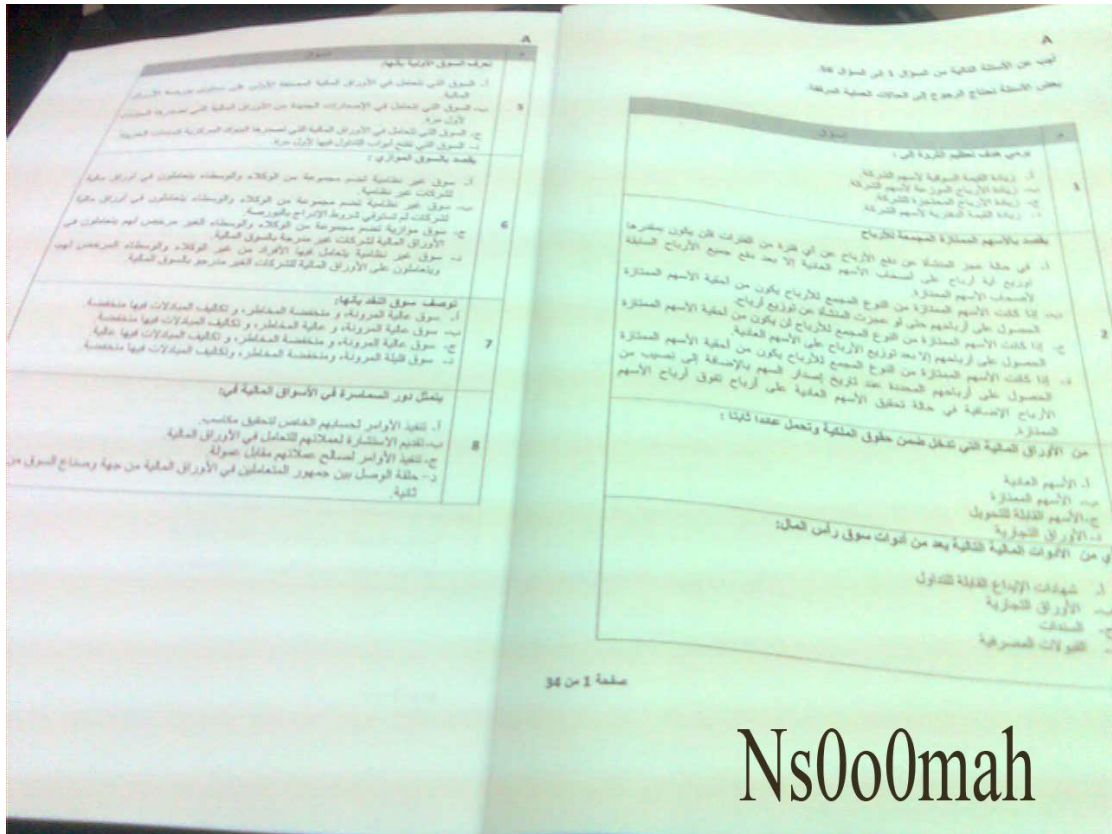 A
أجب عن الأسئلة التالية من السؤال 1 إلى السؤال
بعض الأسئلة تحتاج الرجوع إلى الحالات العملية المرفقة.
م
1
يرمي هدف تعظيم الثروة إلى :
أ. زيادة القيمة السوقية لأسهم الشركة.
ب. زيادة الأرباح الموزعة لأسهم الشركة.
ج. زيادة الأرباح المحتجزة للشركة.
د. زيادة القيمة الدفترية لأسهم الشركة.
2
يقصد بالأسهم الممتازة المجمعة للأرباح
أ. في حالة عجز المنشأة عن دفع الأرباح عن أي فترة من الفترات فلن يكون بمقدرها
توزيع أية أرباح على أصحاب الأسهم العادية إلا بعد دفع جميع الأرباح السابقة
لأصحاب الأسهم الممتازة.
ب. إذا كانت الأسهم الممتازة من النوع المجمع للأرباح يكون من أحقية الأسهم الممتازة
الحصول على أرباحهم حتى لو عجزت المنشأة عن توزيع أرباح.
ج. إذا كانت الأسهم الممتازة من النوع المجمع للأرباح أن يكون من أحقية الأسهم الممتازة
الحصول على أرباحهم إلا بعد توزيع الأرباح على الأسهم العادية.
د. إذا كانت الأسهم الممتازة من النوع المجمع للأرباح يكون من أحقية الأسهم الممتازة
الحصول على أرباحهم المحددة عند تاريخ إصدار السهم بالإضافة إلى نصيب من
الأرباح الإضافية في حالة تحقيق الأسهم العادية على أرباح تفوق أرباح الأسهم
الممتازة.
من الأوراق المالية التي تدخل ضمن حقوق الملكية وتحمل عائدا ثابتا :
أ. الأسهم العادية
ب. الأسهم الممتازة
ج. الأسهم القابلة للتحويل
د. الأوراق التجارية
أي من الأدوات المالية التالية يعد من أدوات سوق رأس المال:
أ. شهادات الإيداع القابلة للتداول
ب. الأوراق التجارية
ج. السندات
القبولات المصرفية
صفحة 1 من 34
A
5
تعرف السوق الأولية بأنها:
أ. السوق التي تتعامل في الأوراق المالية
المالية
ب. السوق التي تتعامل في الإصدارات الجديدة من الأوراق المالية التي تصدرها
لأول مرة.
ج. السوق التي تتعامل في الأوراق المالية التي تصدرها البنوك المركزية
د. السوق التي تفتح أبواب التداول فيها لأول مرة.
6
يقصد بالسوق الموازي :
أ. سوق غير نظامية تضم مجموعة من الوكلاء والوسطاء يتعاملون في أوراق مالية
لشركات غير نظامية.
ب. سوق غير نظامية تضم مجموعة من الوكلاء والوسطاء يتعاملون في أوراق مالية
لشركات لم تستوفي شروط الإدراج بالبورصة.
ج. سوق موازية تضم مجموعة من الوكلاء والوسطاء الغير مرخص لهم يتعاملون في
الأوراق المالية لشركات غير مدرجة بالسوق المالية.
د. سوق غير نظامية يتعامل فيها الأفراد من غير الوكلاء والوسطاء المرخص لهم
ويتعاملون على الأوراق المالية للشركات الغير مدرجو بالسوق المالية.
7
توصف سوق النقد بأنها:
أ. سوق عالية المرونة، و منخفضة المخاطر، و تكاليف المبادلات فيها منخفضة.
ب. سوق عالية المرونة، و عالية المخاطر، و تكاليف المبادلات فيها منخفضة.
ج. سوق عالية المرونة، و منخفضة المخاطر، و تكاليف المبادلات فيها عالية
د. سوق قليلة المرونة، ومنخفضة المخاطر، وتكاليف المبادلات فيها منخفضة.
8
يتمثل دور السماسرة في الأسواق المالية في:
أ. تنفيذ الأوامر لحسابهم الخاص لتحقيق مكاسب.
ب- تقديم الاستشارة لعملائهم للتعامل في الأوراق المالية.
ج- تنفيذ الأوامر لصالح عملائهم مقابل عمولة.
د- حلقة الوصل بين جمهور المتعاملين في الأوراق المالية من جهة وصناع السوق من
ثانية.
Ns0o0mah